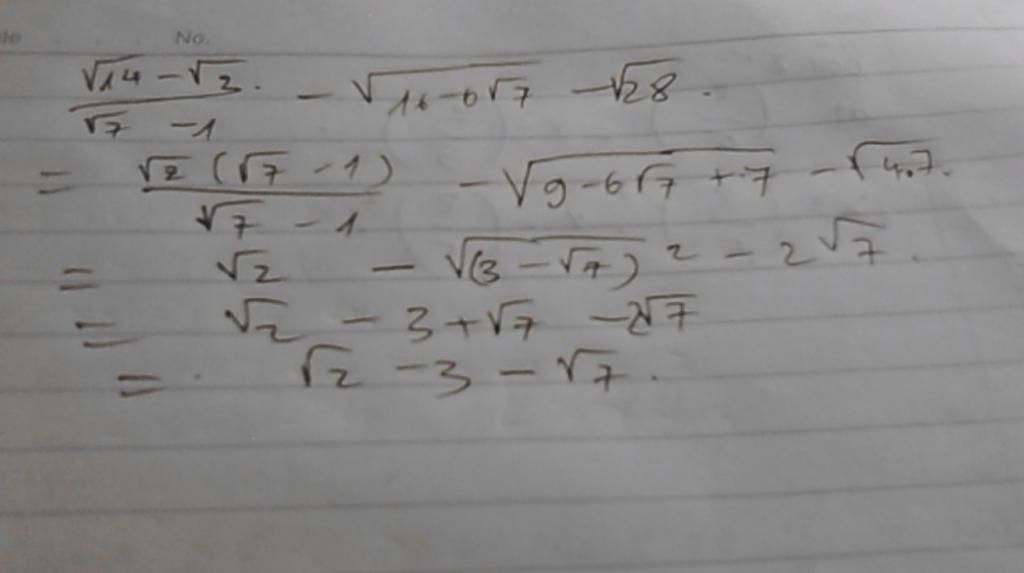 No.
(√14 - √2)/(√7 - 1) - √(16 - 6√7) - √28.
= √2 (√7 - 1)/(√7 - 1) - √(9 - 6√7 + 7) - √4.7.
= √2 - √(3 - √7)² - 2√7.
= √2 - 3 + √7 - 2√7
= √2 - 3 - √7.